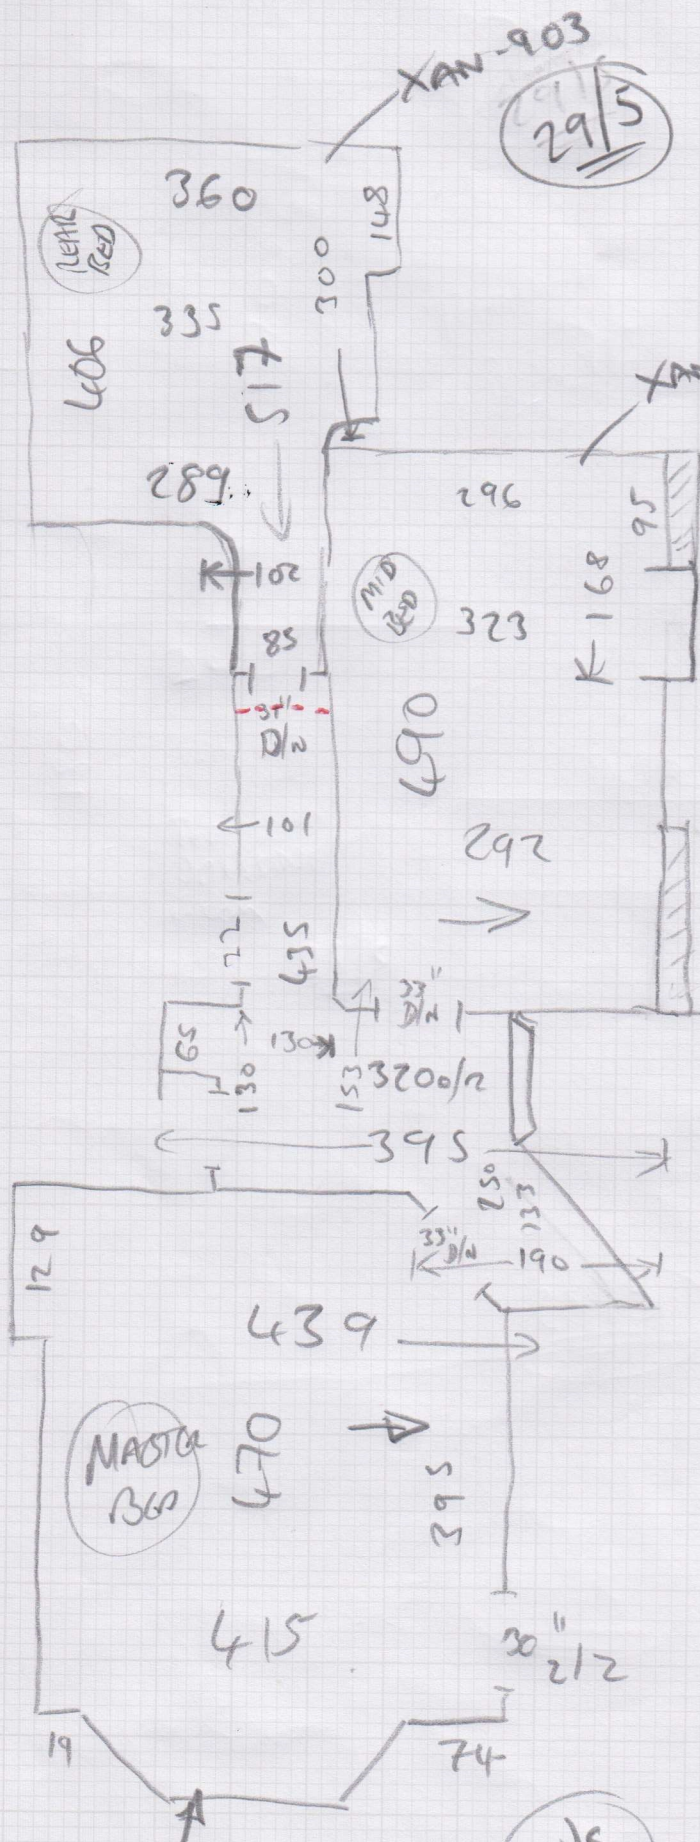 XAN-903
29/5
360
148
REAR
BED
300
335
406
517
289
296
95
102
MID
BED
K-168
323
85
D/N
490
101
292
122
435
33"
D/N
65
130
130
153
320 0/2
395
250
133
129
33"
D/N
190
439
MASTER
BED
470
395
415
30"
2/2
19
74